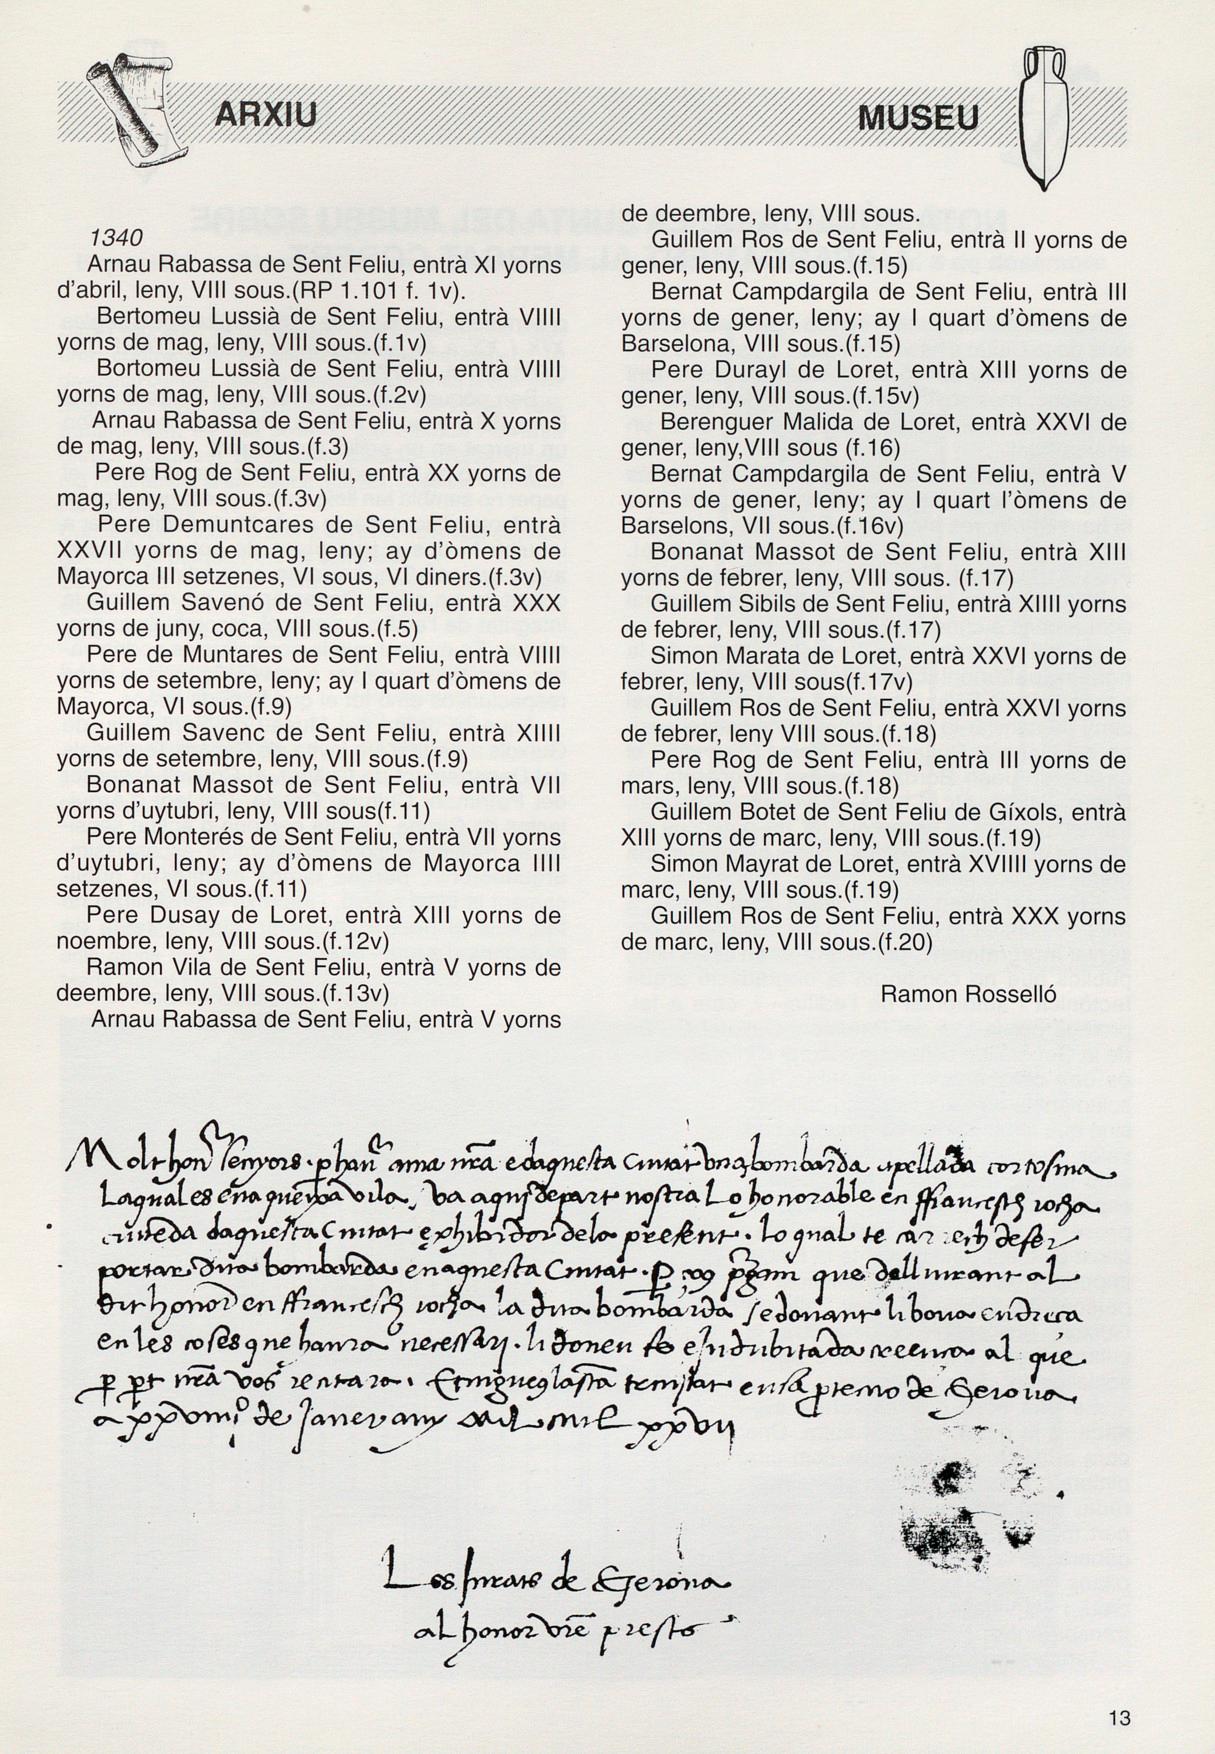 ARXIU
MUSEU
1340
Arnau Rabassa de Sent Feliu, entrà XI yorns
d'abril, leny, VIII sous.(RP 1.101 f. 1v).
Bertomeu Lussià de Sent Feliu, entrà VIIII
yorns de mag, leny, VIII sous.(f.1v)
Bortomeu Lussià de Sent Feliu, entrà VIIII
yorns de mag, leny, VIII sous.(f.2v)
Arnau Rabassa de Sent Feliu, entrà X yorns
de mag, leny, VIII sous.(f.3)
Pere Rog de Sent Feliu, entrà XX yorns de
mag, leny, VIII sous.(f.3v)
Pere Demuntcares de Sent Feliu, entrà
XXVII yorns de mag, leny; ay d'òmens de
Mayorca III setzenes, VI sous, VI diners.(f.3v)
Guillem Savenó de Sent Feliu, entrà XXX
yorns de juny, coca, VIII sous.(f.5)
Pere de Muntares de Sent Feliu, entrà VIIII
yorns de setembre, leny; ay I quart d'òmens de
Mayorca, VI sous.(f.9)
Guillem Savenc de Sent Feliu, entrà XIIII
yorns de setembre, leny, VIII sous.(f.9)
Bonanat Massot de Sent Feliu, entrà VII
yorns d'uytubri, leny, VIII sous(f.11)
Pere Monterés de Sent Feliu, entrà VII yorns
d'uytubri, leny; ay d'òmens de Mayorca IIII
setzenes, VI sous.(f.11)
Pere Dusay de Loret, entrà XIII yorns de
noembre, leny, VIII sous.(f.12v)
Ramon Vila de Sent Feliu, entrà V yorns de
deembre, leny, VIII sous.(f.13v)
Arnau Rabassa de Sent Feliu, entrà V yorns
de deembre, leny, VIII sous.
Guillem Ros de Sent Feliu, entrà II yorns de
gener, leny, VIII sous.(f.15)
Bernat Campdargila de Sent Feliu, entrà III
yorns de gener, leny; ay I quart d'òmens de
Barselona, VIII sous.(f.15)
Pere Durayl de Loret, entrà XIII yorns de
gener, leny, VIII sous.(f.15v)
Berenguer Malida de Loret, entrà XXVI de
gener, leny,VIII sous (f.16)
Bernat Campdargila de Sent Feliu, entrà V
yorns de gener, leny; ay I quart l'òmens de
Barselons, VII sous.(f.16v)
Bonanat Massot de Sent Feliu, entrà XIII
yorns de febrer, leny, VIII sous. (f.17)
Guillem Sibils de Sent Feliu, entrà XIIII yorns
de febrer, leny, VIII sous.(f.17)
Simon Marata de Loret, entrà XXVI yorns de
febrer, leny, VIII sous(f.17v)
Guillem Ros de Sent Feliu, entrà XXVI yorns
de febrer, leny VIII sous.(f.18)
Pere Rog de Sent Feliu, entrà III yorns de
mars, leny, VIII sous.(f.18)
Guillem Botet de Sent Feliu de Gíxols, entrà
XIII yorns de marc, leny, VIII sous.(f.19)
Simon Mayrat de Loret, entrà XVIIII yorns de
marc, leny, VIII sous.(f.19)
Guillem Ros de Sent Feliu, entrà XXX yorns
de marc, leny, VIII sous.(f.20)
Ramon Rosselló
Molt senyors e daquesta Ciutat una bombarda apellada
La qual es en aquexa vila. Va aqui de part nostra Lo honorable en ffrancesch
daquesta Ciutat exhibidor dela present. lo qual te carrech de fer
portar dita bombarda en aquesta Ciutat. que dellivrant al
dit en ffrancesch la dita bombarda e donant li bona endreça
en les coses que haura necessari. li doneu fe e Indubitada creença al que
recitara. de Gerona
de Janer any
Los Jurats de Gerona
al honor prests
13